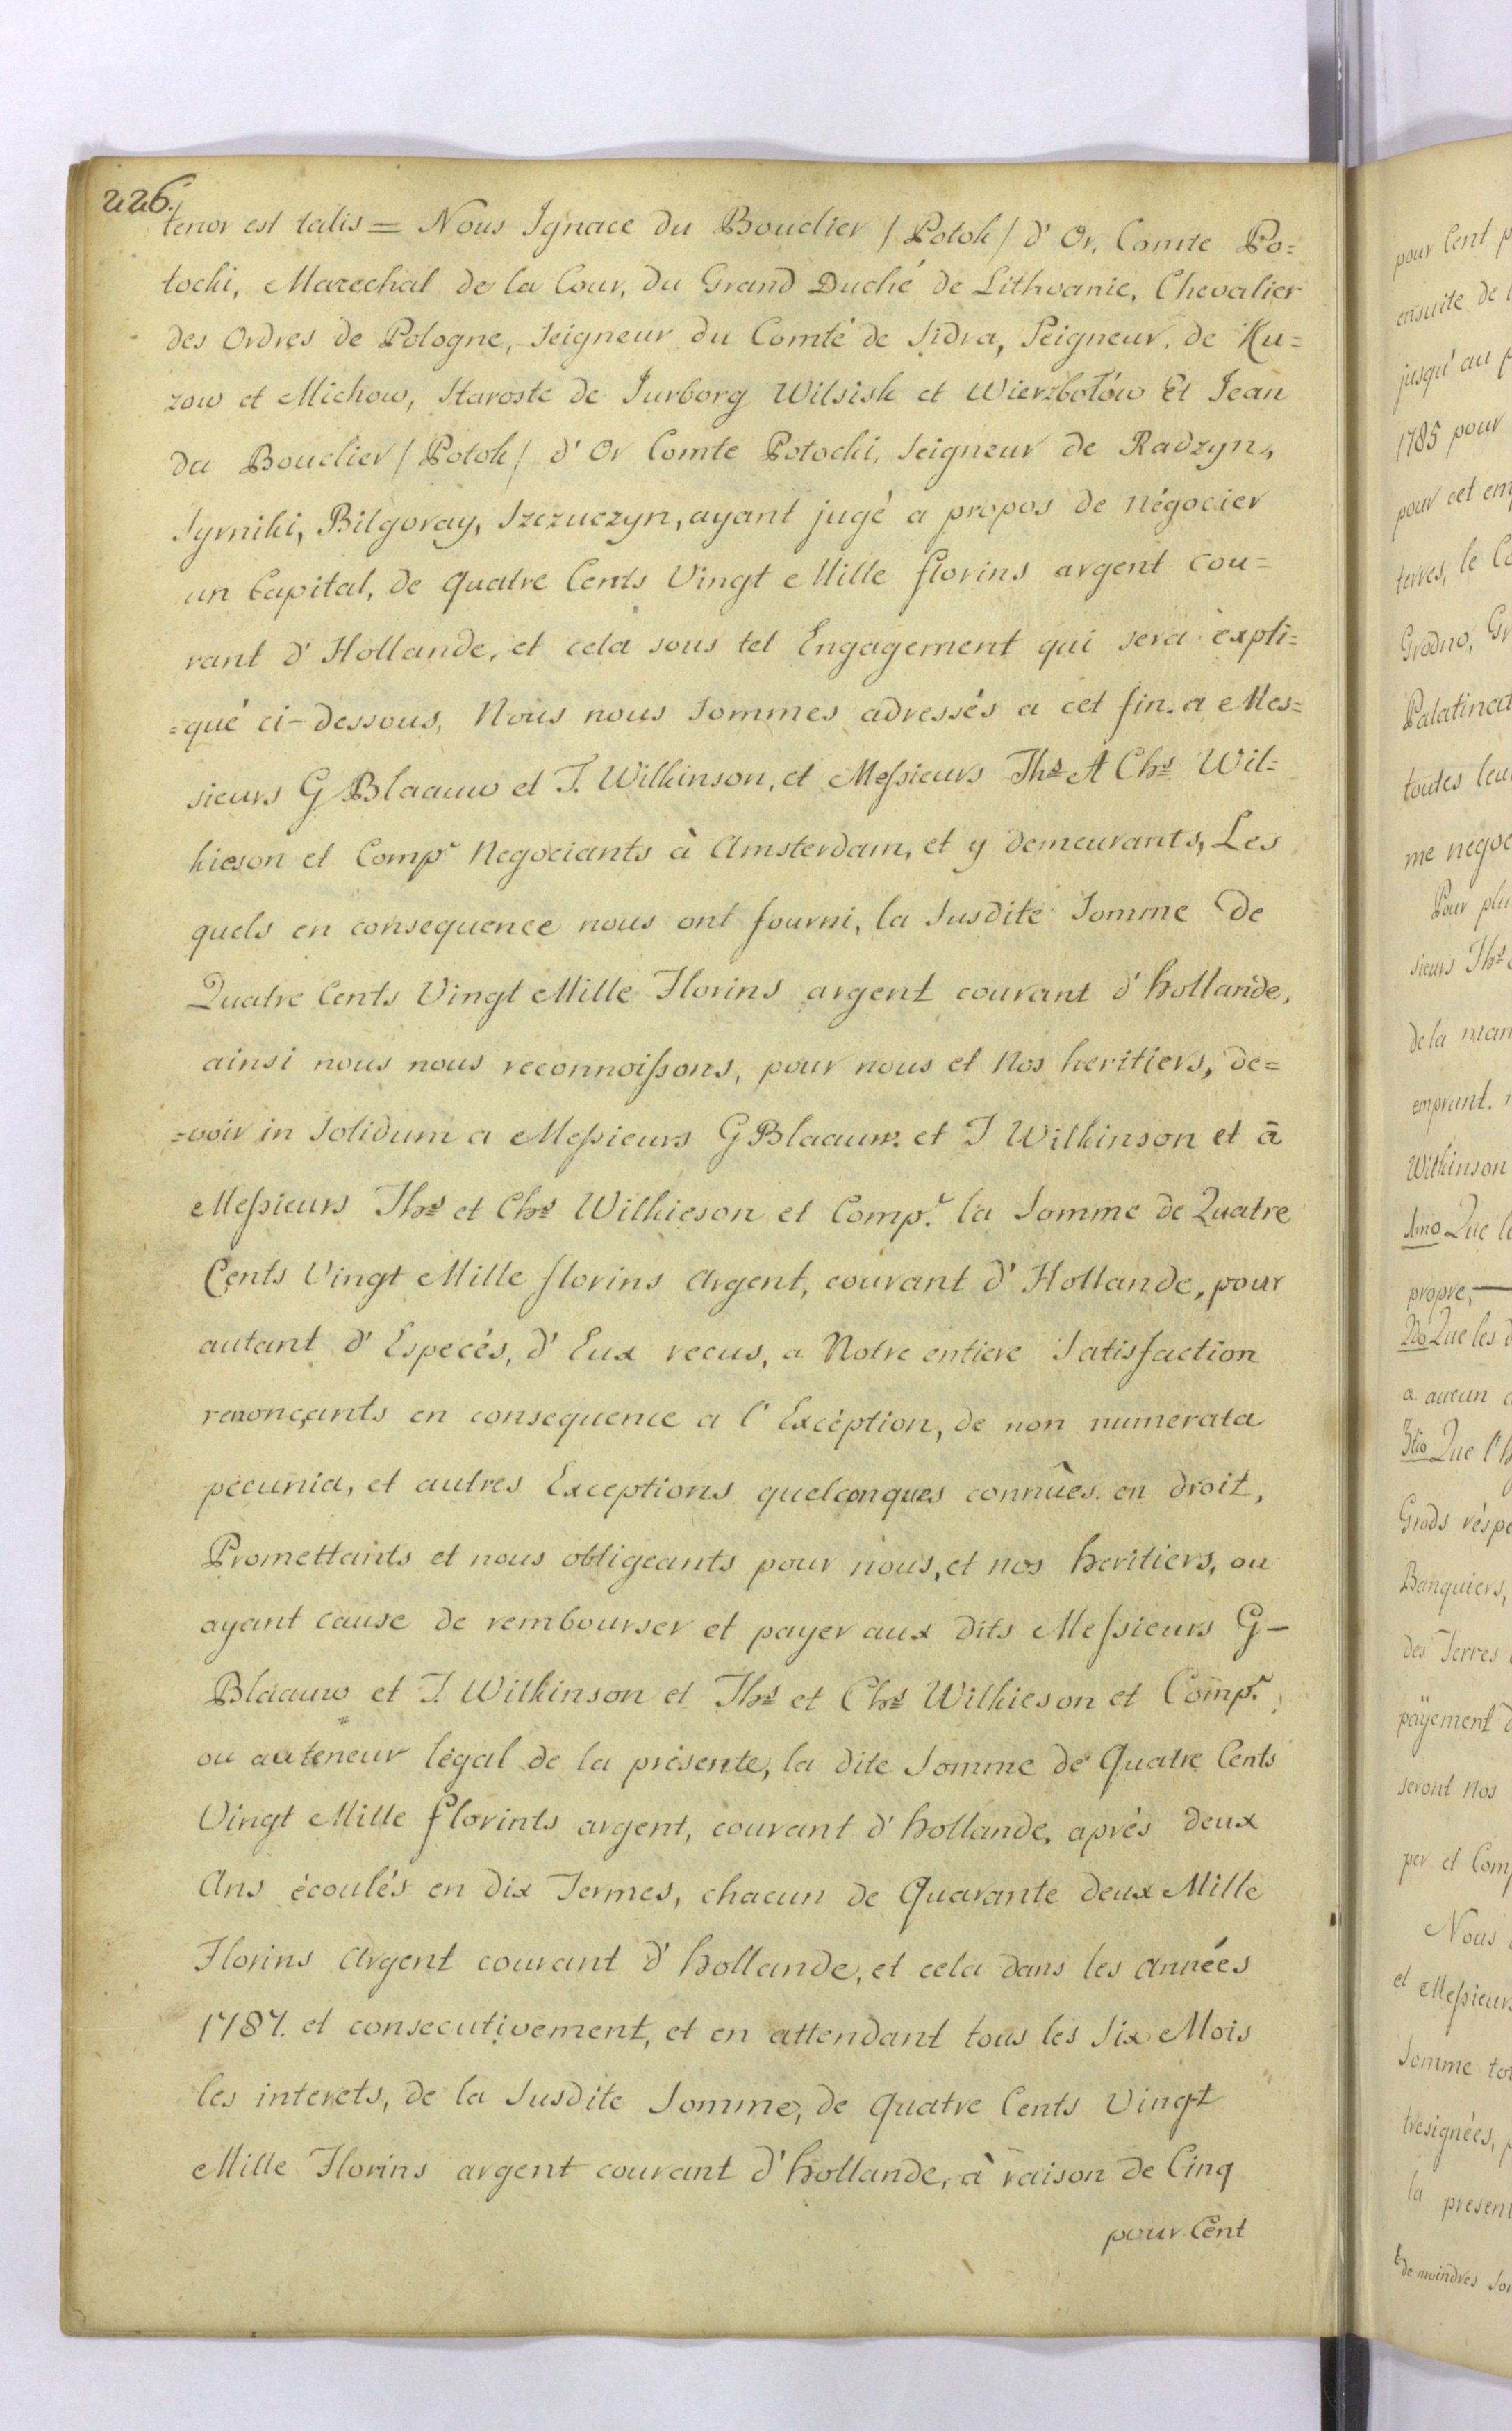 226.
tenor est talis = Nous Ignace du Bouclier / Potok / d' Or, Comte Po=
tocki, Marechal de la Cour, du Grand Duché de Lithvanie, Chevalier
des Ordres de Pologne, Seigneur du Comté de Sidra, Seigneur de Ku=
zow et Michow, Staroste de Jurborg Wilsisk et Wierzbołów Et Jean
du Bouclier / Potok / d' Or Comte Potocki, Seigneur de Radzyn,
Syrniki, Bilgoray, Szczuczyn, ayant jugé a propos de négocier
un Capital, de quatre Cents Vingt Mille florins argent cou=
rant d' Hollande, et cela sous tel Engagement qui sera expli=
=qué ci-dessous, Nous nous sommes adressés a cet fin. a Mes=
sieurs G Blaauw et J. Wilkinson, et Messieurs Ths A Chs Wil=
kieson et Compe Negociants à Amsterdam, et y demeurants, Les
quels en consequence nous ont fourni, la Susdite Somme de
Quatre Cents Vingt Mille Florins argent courant d' hollande,
ainsi nous nous reconnoissons, pour nous et Nos heritiers, de=
=voir in Solidum a Messieurs G Blaauw. et J Wilkinson et à
Messieurs Ths et Chs Wilkieson et Compe la Somme de Quatre
Cents Vingt Mille florins Argent, courant d' Hollande, pour
autant d' Especés, d' Eux recus, a Notre entiere Satisfaction
renonçants en consequence a l' Excéption, de non numerata
pecunia, et autres Exceptions quelconques connûes en droit,
Promettants et nous obligeants pour nous, et nos heritiers, ou
ayant cause de rembourser et payer aux dits Messieurs G –
Blaauw et J. Wilkinson et Ths et Chs Wilkieson et Compe,
ou auteneur légal de la présente, la dite Somme de Quatre Cents
Vingt Mille florints argent, courant d' hollande, aprés deux
Ans écoulés en dix Termes, chacun de Quarante deux Mille
Florins Argent courant d' hollande, et cela dans les années
1787. et consecutivement, et en attendant tous les Six Mois
les interets, de la Susdite Somme, de quatre Cents Vingt
Mille Florins argent courant d' hollande, à raison de Cinq
pour Cent
pour Cent
ensuite de
jusqu' au
1785 pour
pour cet
terres, le
Grodno,
Palatinat
toutes
me
Pour
sieurs Ths
de la
emprunt.
Wilkinson
1mo Que
propre, —
2do Que les
a aucun
3tio Que
Grods
Banquiers,
des Terres
payement
seront nos
per et
Nous
et Messieurs
Somme
la
de moindres